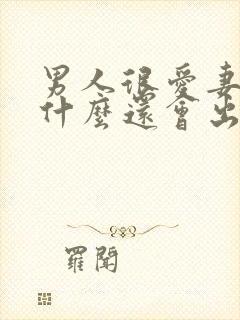 男人很愛妻
什麼還會出
羅聞